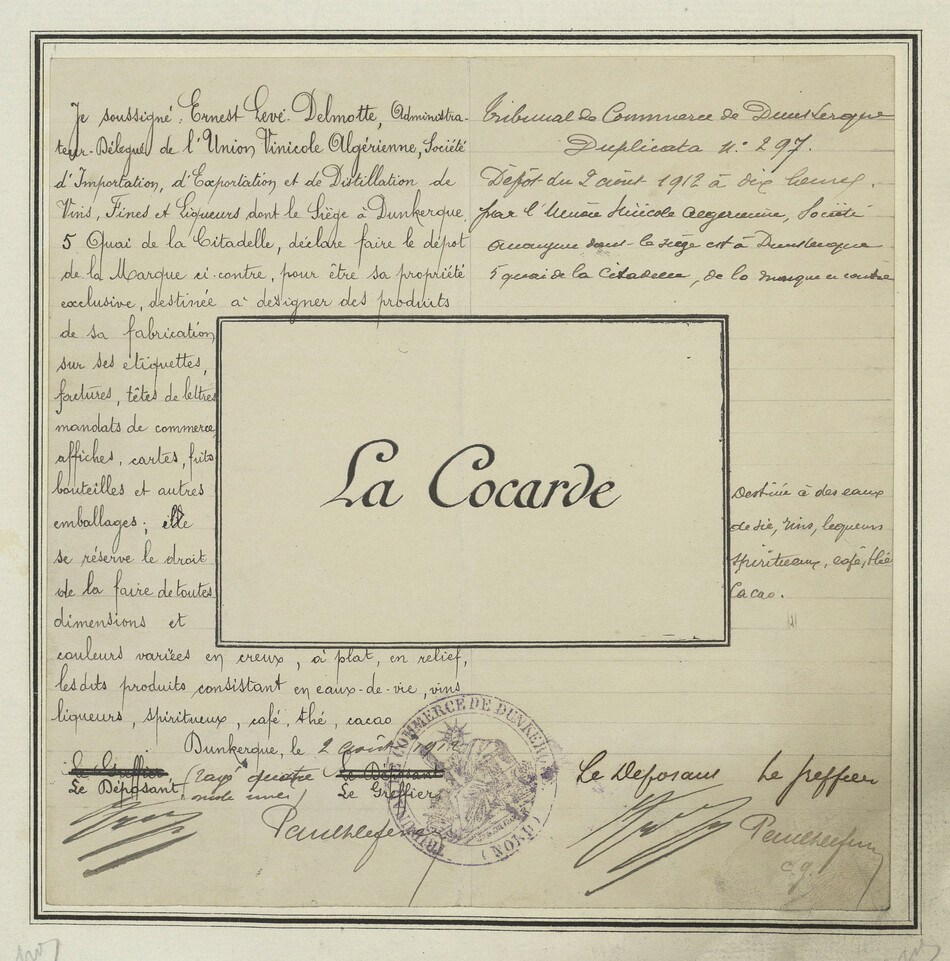 Je soussigné, Ernest Levé-Delmotte, Administra-
teur-Délégué de l'Union Vinicole Algérienne, Société
d'Importation, d'Exportation et de Distillation de
Vins, Fines et Liqueurs dont le Siège à Dunkerque,
5 Quai de la Citadelle, déclare faire le dépôt
de la Marque ci-contre, pour être sa propriété
exclusive, destinée à désigner des produits
de sa fabrication
sur ses étiquettes,
factures, têtes de lettres
mandats de commerce,
affiches, cartes, fûts
bouteilles et autres
emballages; elle
se réserve le droit
de la faire de toutes
dimensions et
couleurs variées en creux, à plat, en relief,
les dits produits consistant en eaux-de-vie, vins
liqueurs, spiritueux, café, thé, cacao
Dunkerque, le 2 août 1912
le Greffier
Le Déposant
(rayé quatre
mots nuls)
Le Déposant
Le Greffier
La Cocarde
Tribunal de Commerce de Dunkerque
Duplicata N.° 297.
Dépôt du 2 août 1912 à dix heures.
par l'Union Vinicole Algérienne, Société
anonyme dont le siège est à Dunkerque
5 quai de la Citadelle, de la marque ci contre
Destinée à des eaux
de vie, vins, liqueurs
spiritueux, café, thé
Cacao.
Le Déposant Le greffier
c.g.
TRIBUNAL DE COMMERCE DE DUNKERQUE
(NORD)